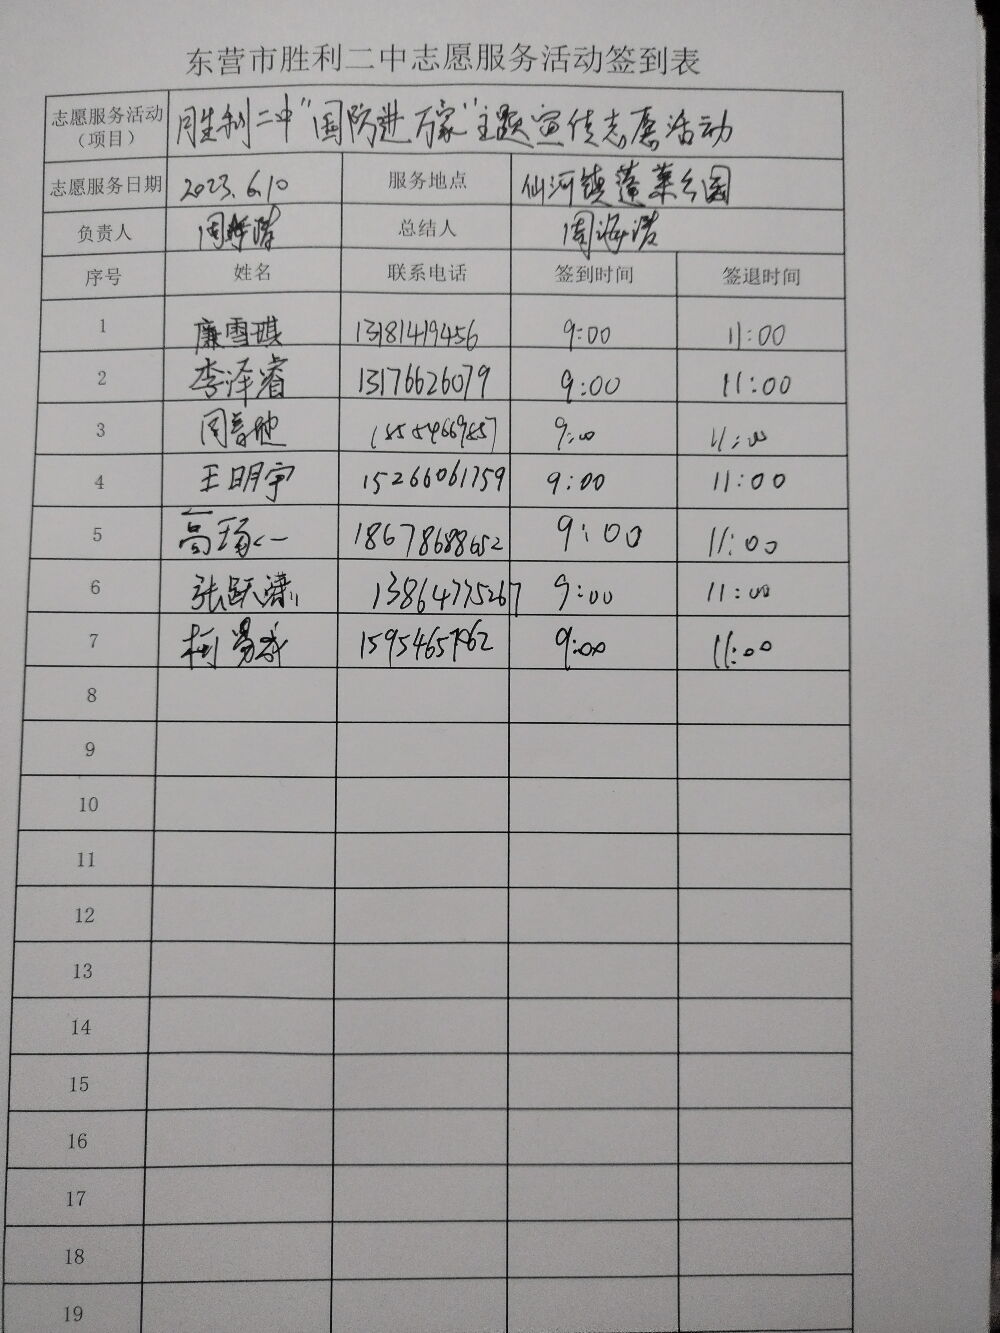 东营市胜利二中志愿服务活动签到表
志愿服务活动（项目） 胜利二中"国防进万家"主题宣传志愿活动
志愿服务日期 2023.6.10 服务地点 仙河镇蓬莱公园
负责人 周海清 总结人 周海清
序号 姓名 联系电话 签到时间 签退时间
1 廉雪琪 13181419456 9:00 11:00
2 李泽睿 13176626079 9:00 11:00
3 周 9:00 11:00
4 王明宇 15266061759 9:00 11:00
5 高 18678688652 9:00 11:00
6 张跃潇 13864775267 9:00 11:00
7 柯易成 9:00 11:00
8
9
10
11
12
13
14
15
16
17
18
19